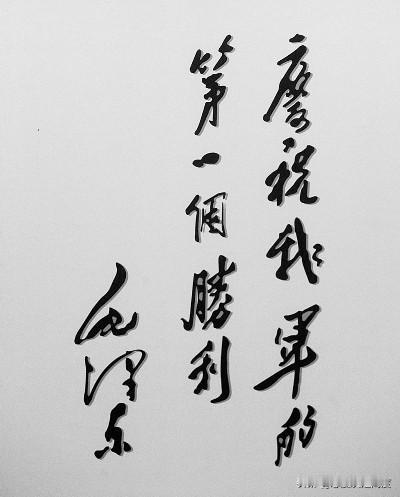 慶祝我軍的
第一個勝利
毛泽东